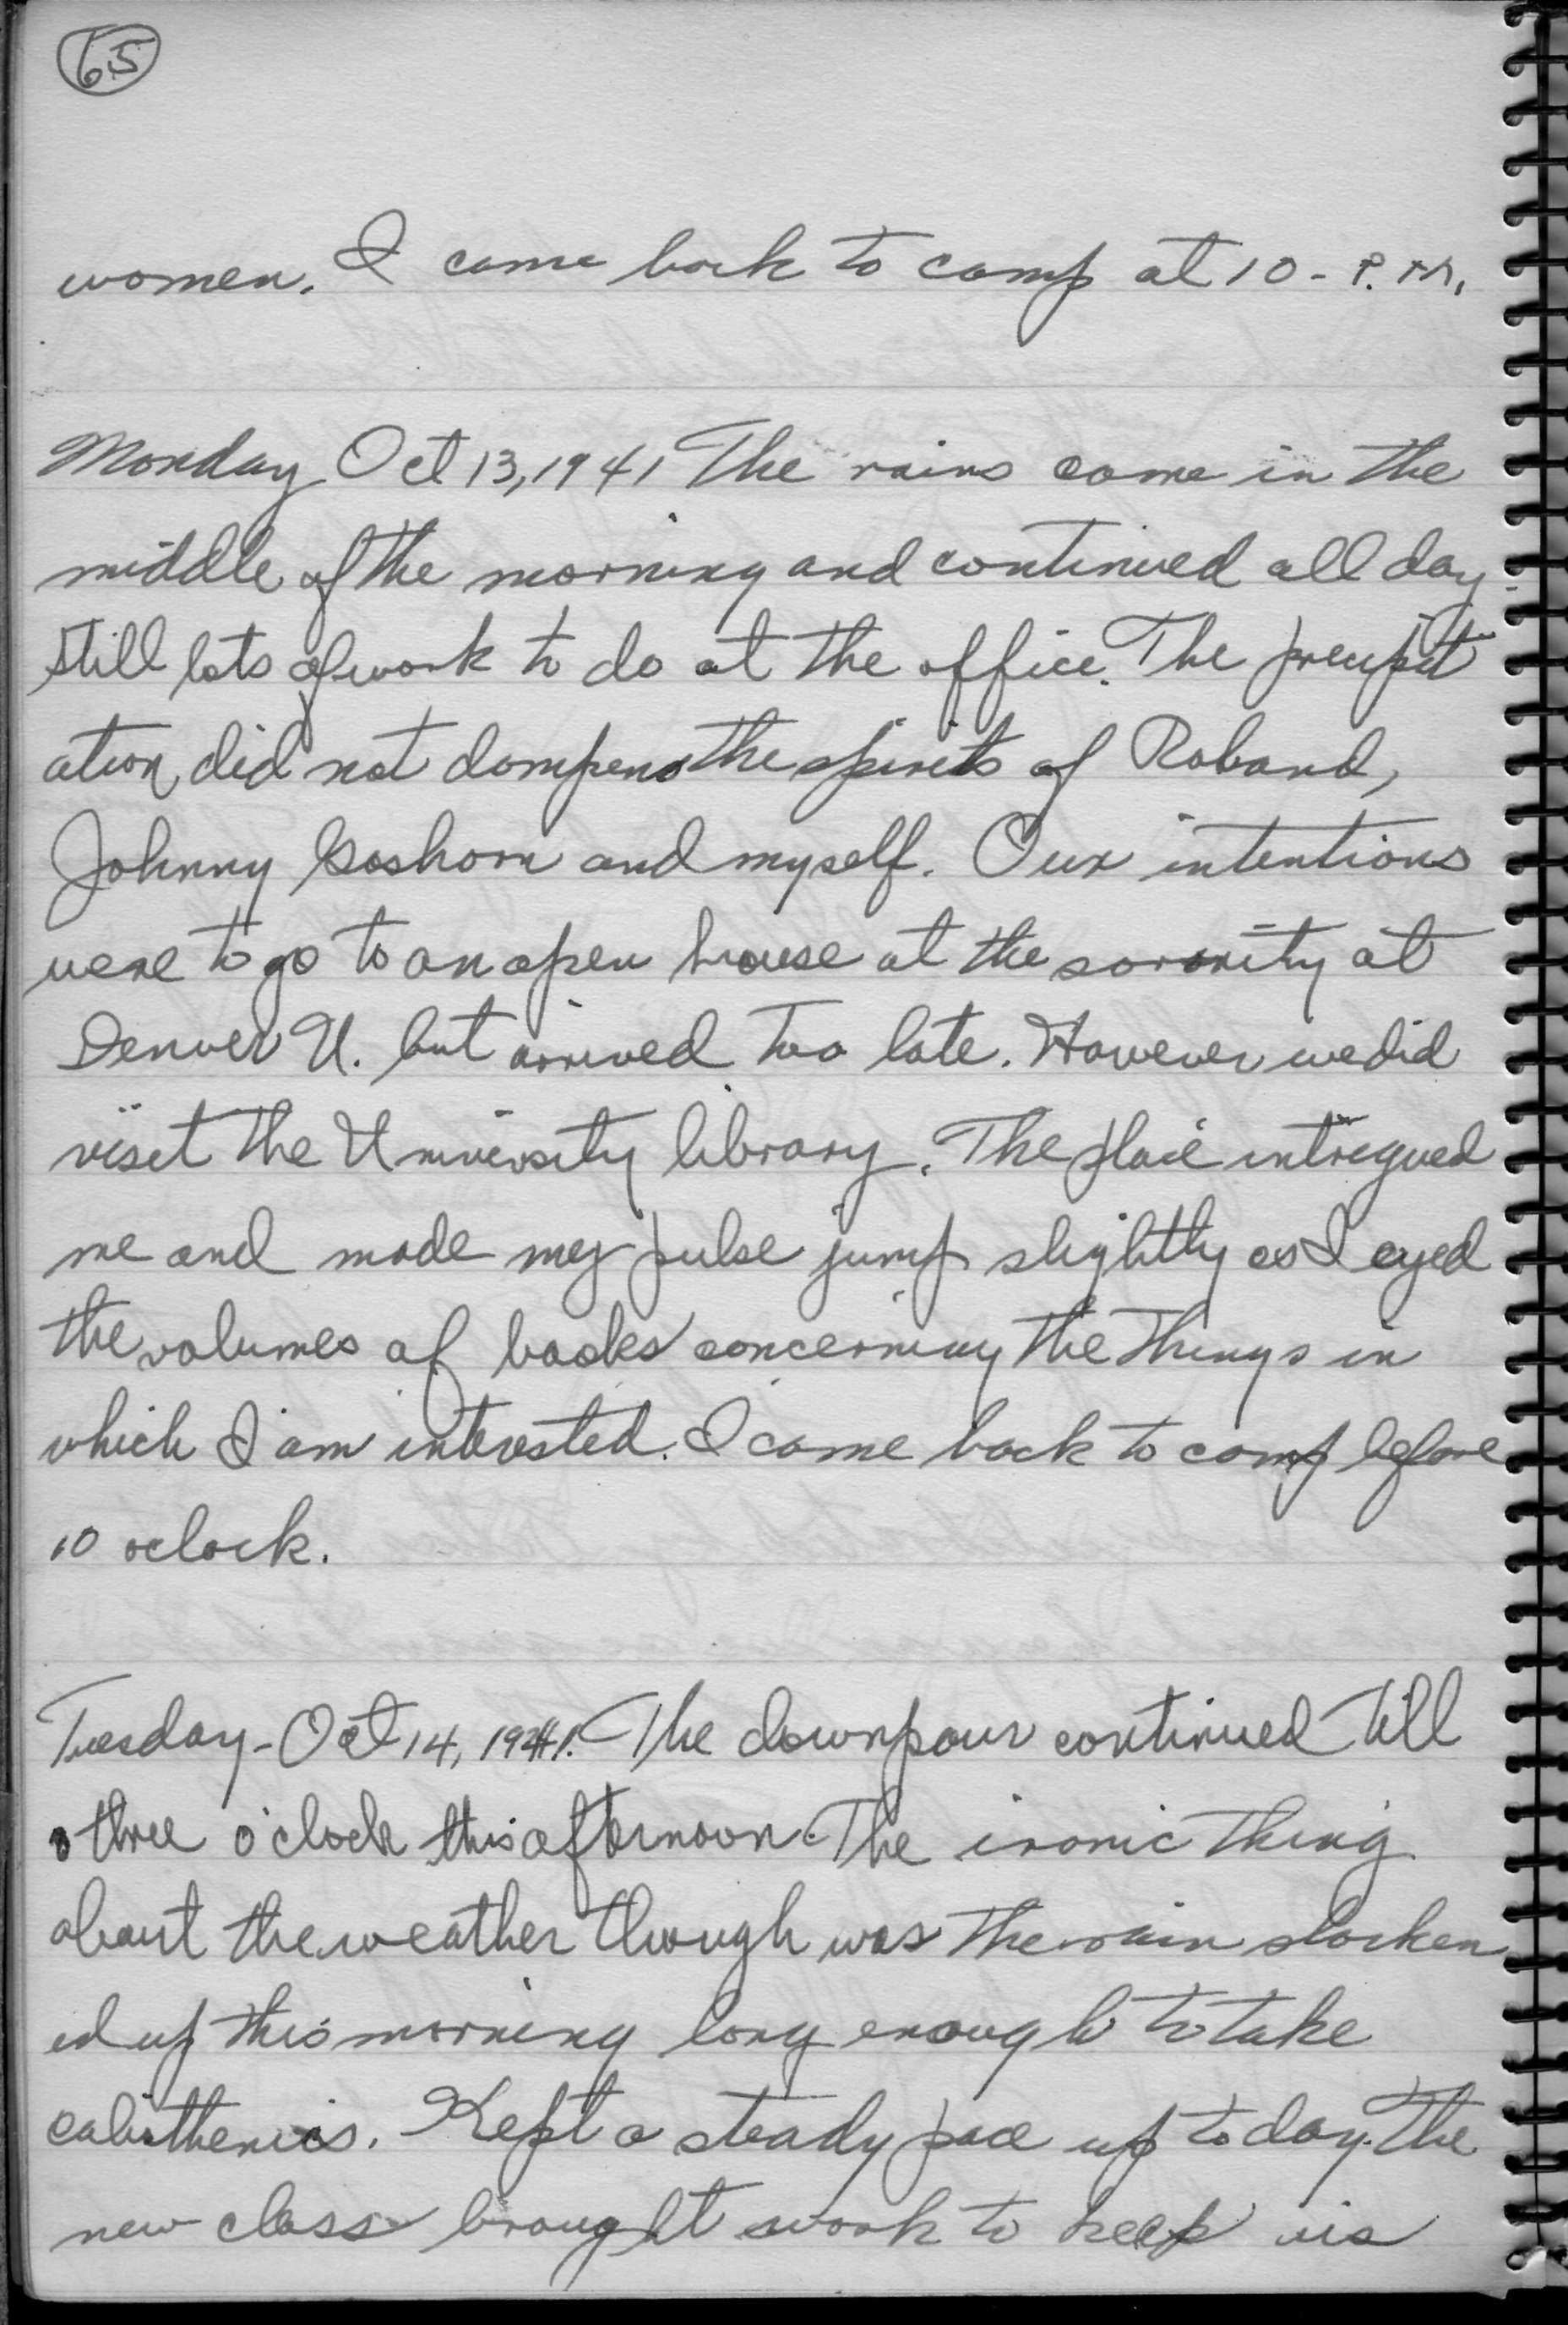 65
women. I came back to camp at 10 - P.M.
Monday Oct 13, 1941 The rains came in the
middle of the morning and continued all day.
Still lots of work to do at the office. The precipit
ation did not dampen the spirits of Roband,
Johnny Goshorn and myself. Our intentions
were to go to an open house at the sorority at
Denver U. but arrived too late. However we did
visit the University library. The place intrigued
me and made my pulse jump slightly as I eyed
the volumes of books concerning the things in
which I am interested. I came back to camp before
10 oclock.
Tuesday - Oct 14, 1941. The downpour continued till
three o'clock this afternoon. The ironic thing
about the weather though was the rain slacken
ed up this morning long enough to take
calisthenics. Kept a steady pace up today. The
new class brought work to keep us